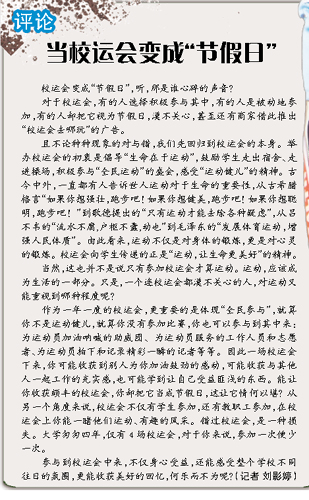 评论
当校运会变成“节假日”
校运会变成“节假日”,听,那是谁心碎的声音?
对于校运会,有的人选择积极参与其中,有的人是被动地参
加,有的人却把它视为节假日,漠不关心,甚至还有商家借此推出
“校运会去哪玩”的广告。
且不论种种现象的对与错,我们先回归到校运会的本身。举
办校运会的初衷是倡导“生命在于运动”,鼓励学生走出宿舍、走
进操场,积极参与“全民运动”的盛会,感受“运动健儿”的精神。古
今中外,一直都有人告诉世人运动对于生命的重要性,从古希腊
格言“如果你想强壮,跑步吧!如果你想健美,跑步吧!如果你想聪
明,跑步吧!”到歌德提出的“只有运动才能去除各种疑虑”,从吕
不韦的“流水不腐,户枢不蠹,动也”到毛泽东的“发展体育运动,增
强人民体质”。由此看来,运动不仅是对身体的锻炼,更是对心灵
的锻炼。校运会向学生传递的正是“运动,让生命更美好”的精神。
当然,这也并不是说只有参加校运会才算运动。运动,应该成
为生活的一部分。只是,一个连校运会都漠不关心的人,对运动又
能重视到哪种程度呢?
作为一年一度的校运会,更重要的是体现“全民参与”,就算
你不是运动健儿,就算你没有参加比赛,你也可以参与到其中来:
为运动员加油呐喊的助威团、为运动员服务的工作人员和志愿
者、为运动员拍下和记录精彩一瞬的记者等等。因此一场校运会
下来,你可能收获到别人为你加油鼓劲的感动,可能收获与其他
人一起工作的充实感,也可能学到让自己受益匪浅的东西。能让
你收获颇丰的校运会,你却把它当成节假日,这让它情何以堪?从
另一个角度来说,校运会不仅有学生参加,还有教职工参加,在校
运会上你能一睹他们运动、有趣的风采。错过校运会,是一种损
失。大学匆匆四年,仅有4场校运会,对于你来说,参加一次便少
一次。
参与到校运会中来,不仅身心受益,还能感受整个学校不同
往日的氛围,更能收获美好的回忆,何乐而不为呢?【记者 刘影婷】